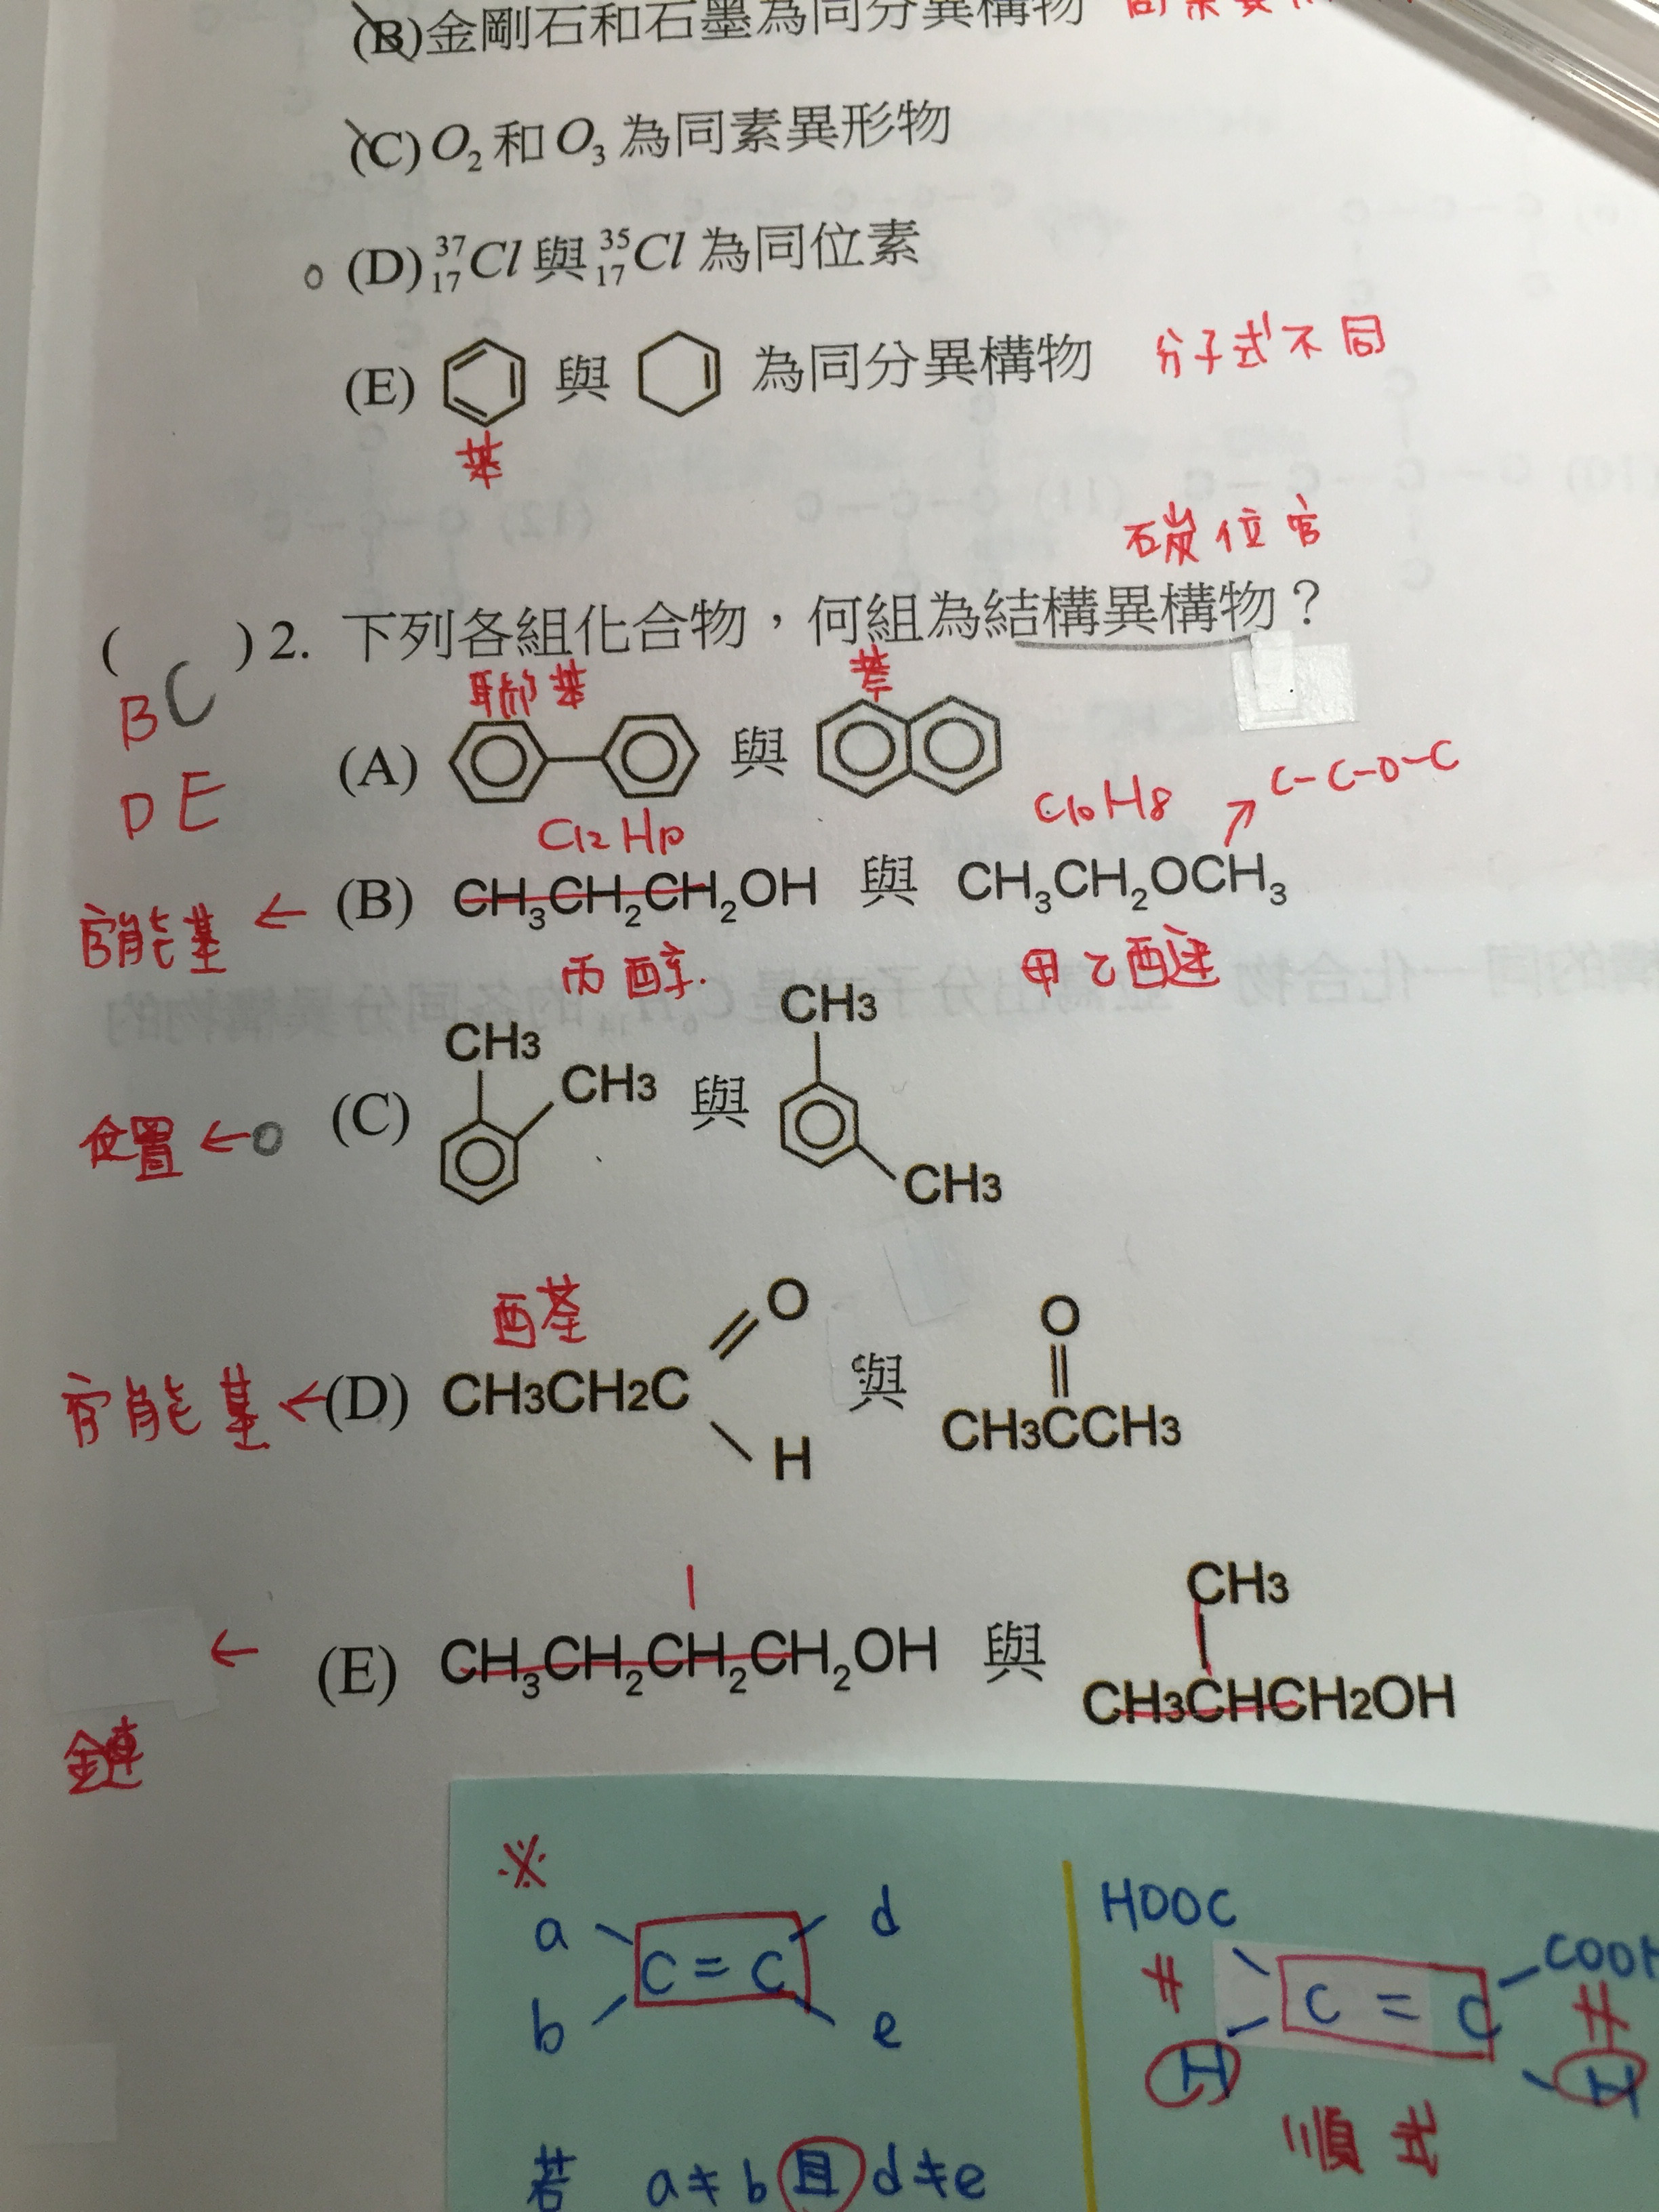 (B)金剛石和石墨為同分異構物
(C) O₂ 和 O₃ 為同素異形物
(D) ³⁷₁₇Cl 與 ³⁵₁₇Cl 為同位素
(E) 與 為同分異構物 分子式不同
苯
碳位官
( )2. 下列各組化合物，何組為結構異構物？
BC
DE
聯苯
(A) 與
C12H10 C10H8
C-C-O-C
官能基 ← (B) CH₃CH₂CH₂OH 與 CH₃CH₂OCH₃
丙醇 甲乙醚
CH3 CH3
位置 ← (C) CH3 與 CH3
醛
O O
官能基 ← (D) CH3CH2C 與 CH3CCH3
H
CH3
← (E) CH₃CH₂CH₂CH₂OH 與 CH3CHCH2OH
鏈
※
a d
C = C
b e
若 a≠b 且 d≠e
HOOC
C = C
H H
順式